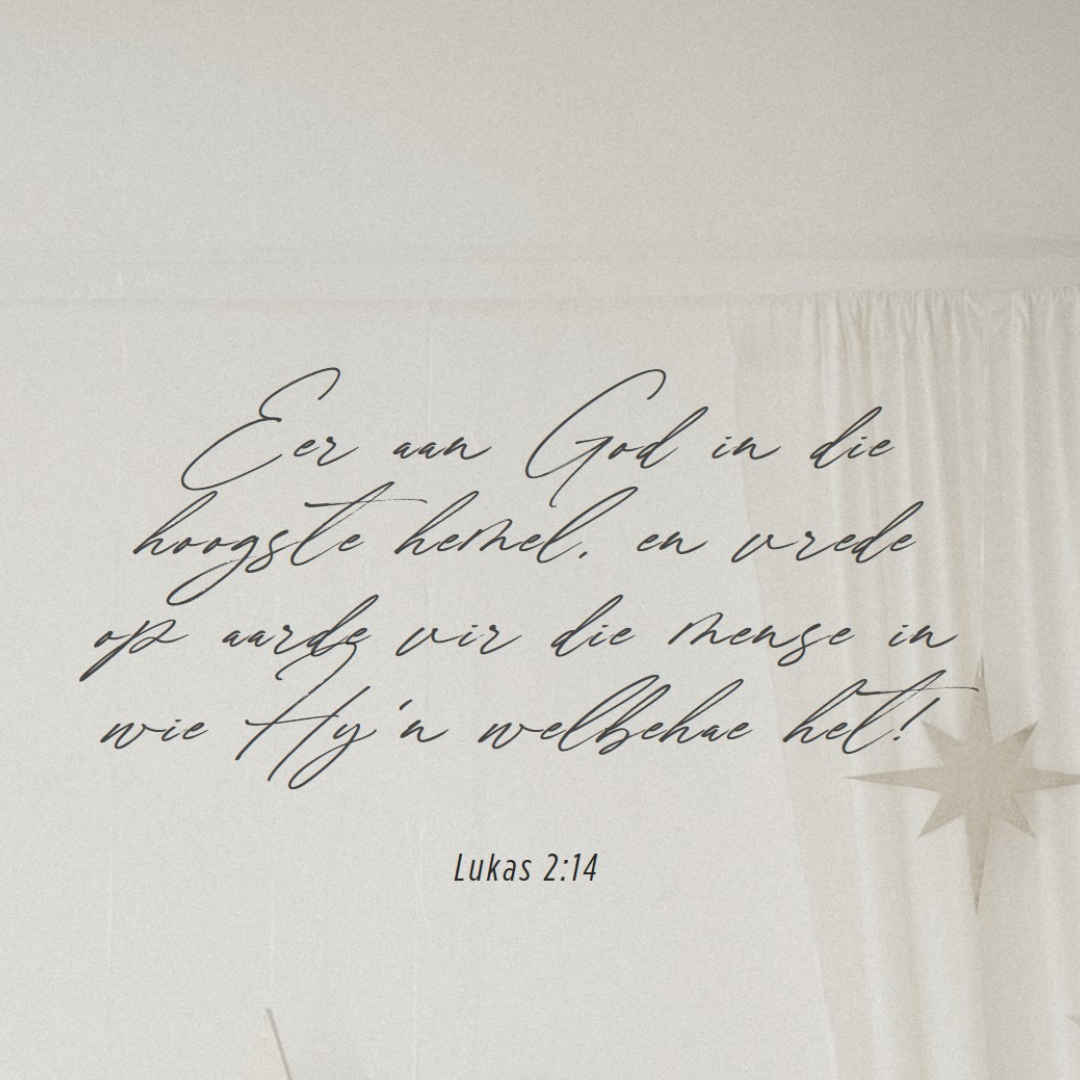 Eer aan God in die
hoogste hemel, en vrede
op aarde vir die mense in
wie Hy 'n welbehae het!
Lukas 2:14